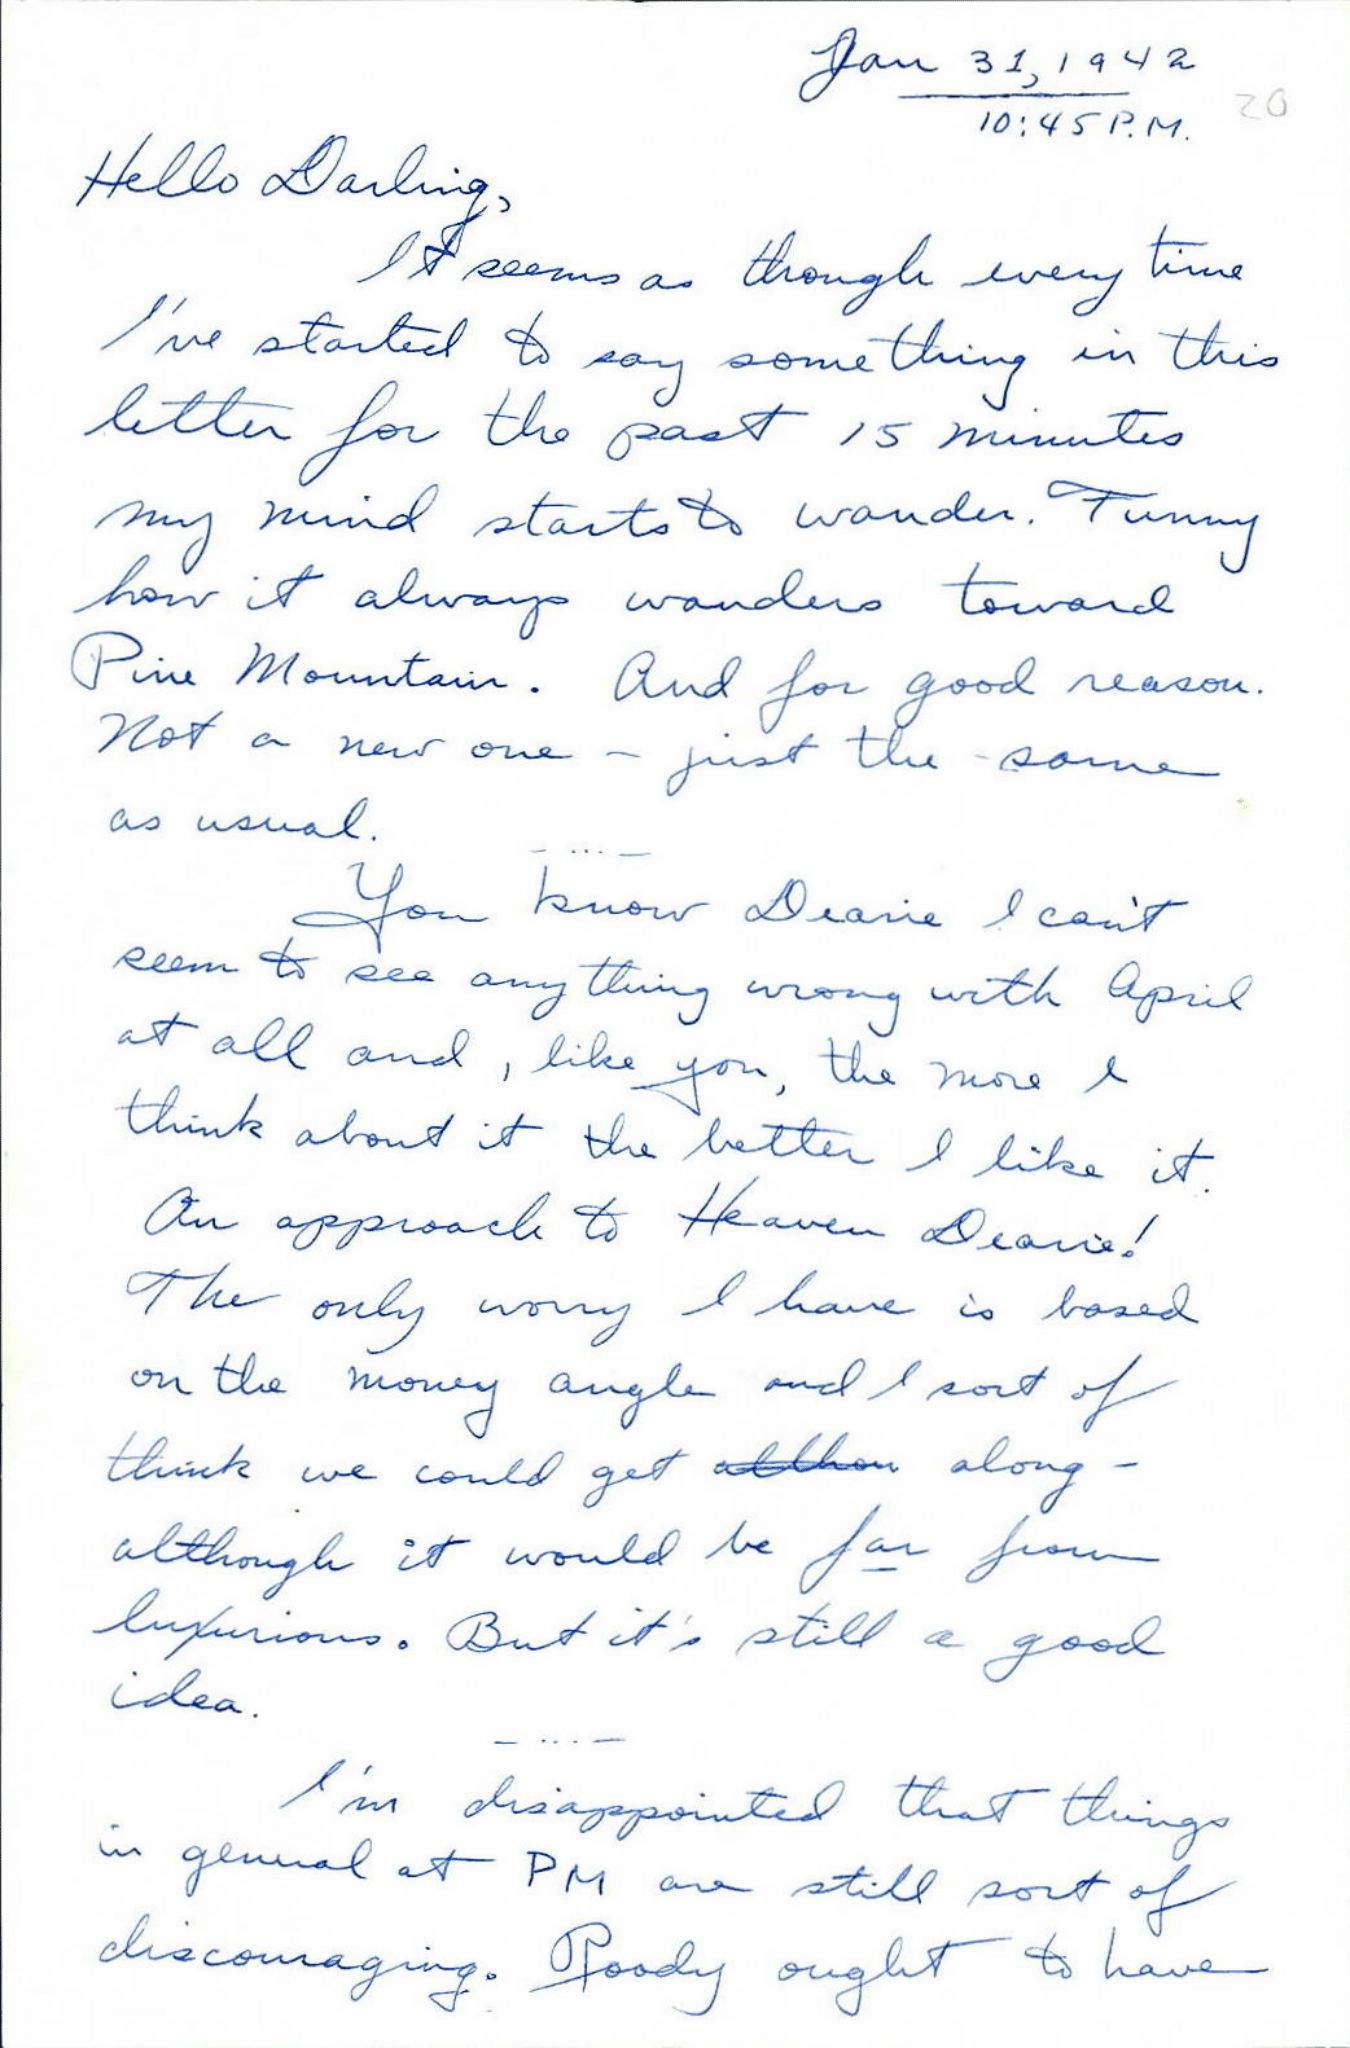 Jan 31, 1942
20
10:45 P.M.
Hello Darling,
It seems as though every time
I've started to say something in this
letter for the past 15 minutes
my mind starts to wander. Funny
how it always wanders toward
Pine Mountain. And for good reason.
Not a new one – just the same
as usual.
– ... –
You know Dearie I can't
seem to see anything wrong with April
at all and, like you, the more I
think about it the better I like it.
An approach to Heaven Dearie!
The only worry I have is based
on the money angle and I sort of
think we could get althou along –
although it would be far from
luxurious. But it's still a good
idea.
– ... –
I'm disappointed that things
in general at PM are still sort of
discouraging. ought to have